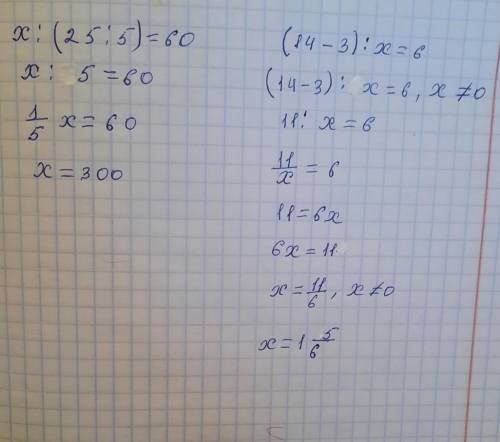 x : (25 : 5) = 60
x : 5 = 60
1/5 x = 60
x = 300
(14 - 3) : x = 6
(14 - 3) : x = 6, x ≠ 0
11 : x = 6
11/x = 6
11 = 6x
6x = 11
x = 11/6, x ≠ 0
x = 1 5/6